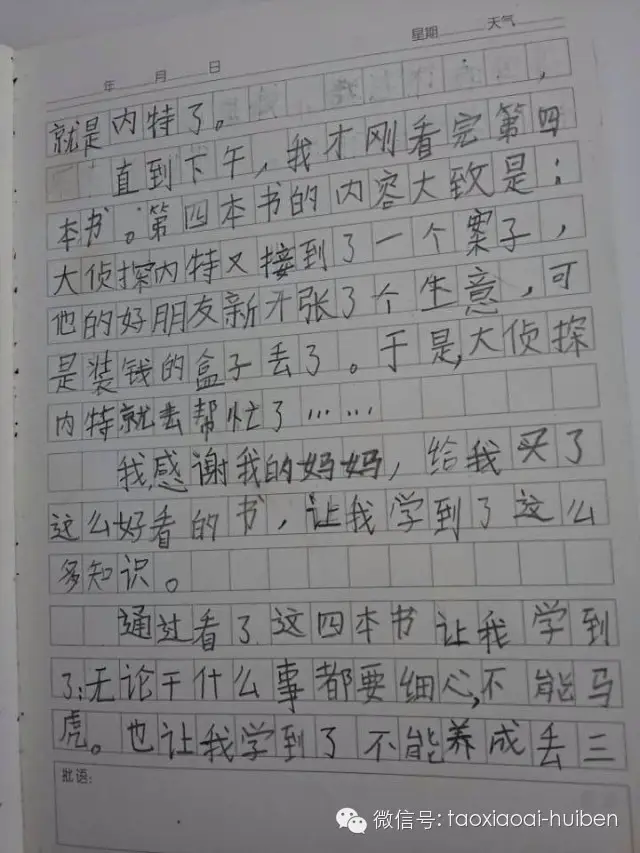 年 月 日 星期 天气
就是内特了。
直到下午，我才刚看完第四
本书。第四本书的内容大致是：
大侦探内特又接到了一个案子，
他的好朋友新开张了个生意，可
是装钱的盒子丢了。于是，大侦探
内特就去帮忙了……
我感谢我的妈妈，给我买了
这么好看的书，让我学到了这么
多知识。
通过看了这四本书让我学到
了：无论干什么事都要细心，不能马
虎。也让我学到了不能养成丢三
批语：
微信号: taoxiaoai-huiben